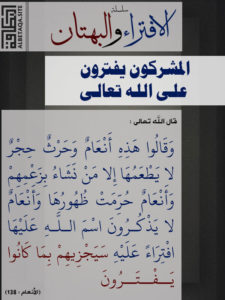 البطاقة
ALBETAQA-SITE
سلسلة
الافتراء والبهتان
المشركون يفترون
على الله تعالى
قال الله تعالى :
وَقَالُوا هَذِهِ أَنْعَامٌ وَحَرْثٌ حِجْرٌ
لَا يَطْعَمُهَا إِلَّا مَنْ نَشَاءُ بِزَعْمِهِمْ
وَأَنْعَامٌ حُرِّمَتْ ظُهُورُهَا وَأَنْعَامٌ
لَا يَذْكُرُونَ اسْمَ اللَّهِ عَلَيْهَا
افْتِرَاءً عَلَيْهِ سَيَجْزِيهِمْ بِمَا كَانُوا
يَفْتَرُونَ
(الأنعام : 138)